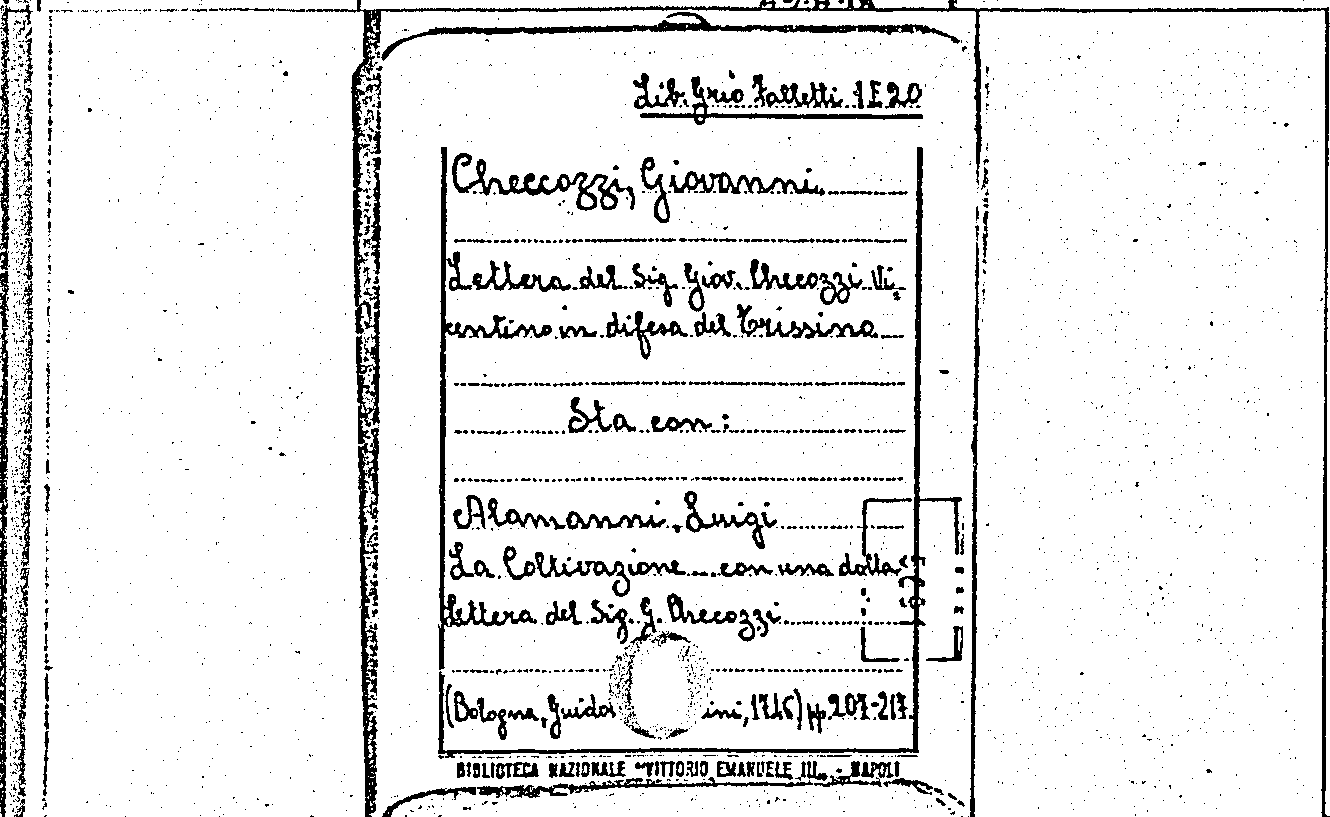 Lib. Grio Falletti 1 E 20
Checcozzi, Giovanni.
Lettera del Sig. Giov. Checozzi Vi-
centino in difesa del Trissino
Sta con:
Alamanni, Luigi
La Coltivazione ... con una dotta
Lettera del Sig. G. Checozzi
(Bologna, Guido ini, 1746) pp. 207-217.
BIBLIOTECA NAZIONALE "VITTORIO EMANUELE III" - NAPOLI